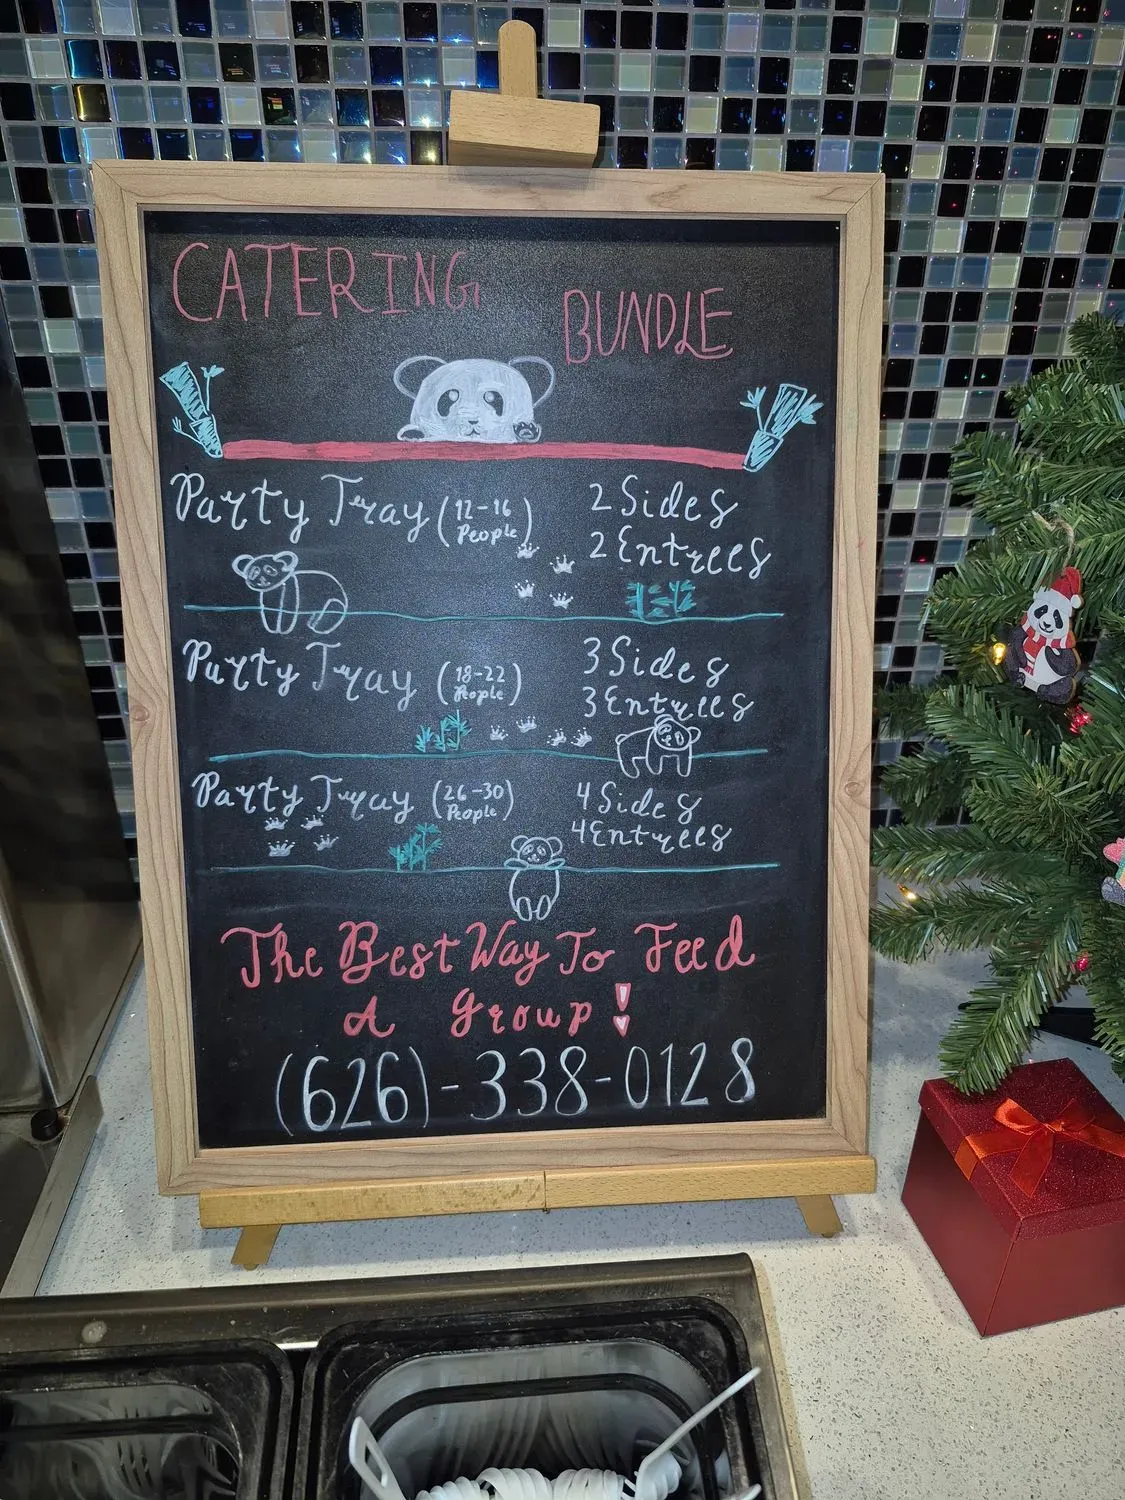 CATERING BUNDLE
Party Tray (12-16 People) 2 Sides
2 Entrees
Party Tray (18-22 People) 3 Sides
3 Entrees
Party Tray (26-30 People) 4 Sides
4 Entrees
The Best Way To Feed
A Group!
(626)-338-0128